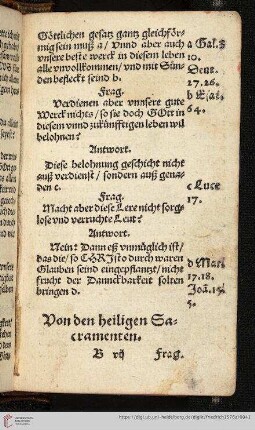 Göttlichen gesatz gantz gleichför-
mig sein muß a / vnnd aber auch
vnsere beste werck in disem leben
alle vnvollkommen / vnd mit Sün-
den befleckt seind b.
a Gal. 3
10.
Deut.
27. 26.
b Esai.
64.
Frag.
Verdienen aber vnnsere gute
Werck nichts / so sie doch GOtt in
disem vnnd zukünfftigen leben wil
belohnen?
Antwort.
Diese belohnung geschicht nicht
auß verdienst / sondern auß gena-
den c.
c Luce
17.
Frag.
Macht aber diese Lere nicht sorg-
lose vnd verruchte Leut?
Antwort.
Nein: Dann eß vnmüglich ist /
das die / so CHRJsto durch waren
Glauben seind eingepflantzt / nicht
frucht der Danckbarkeit solten
bringen d.
d Mat.
17. 18.
Joā. 15
5.
Von den heiligen Sa-
cramenten.
B vij
Frag.